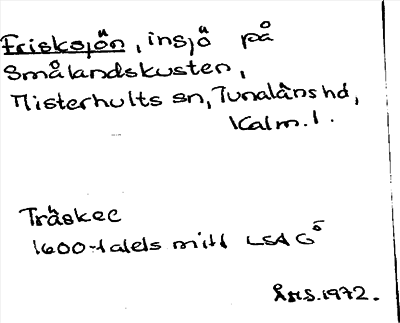 Frisksjön, insjö på
Smålandskusten,
Misterhults sn, Tunaläns hd,
Kalm. l.
Träskee
1600-talets mitt LSA G⁵
ÅHS. 1972.